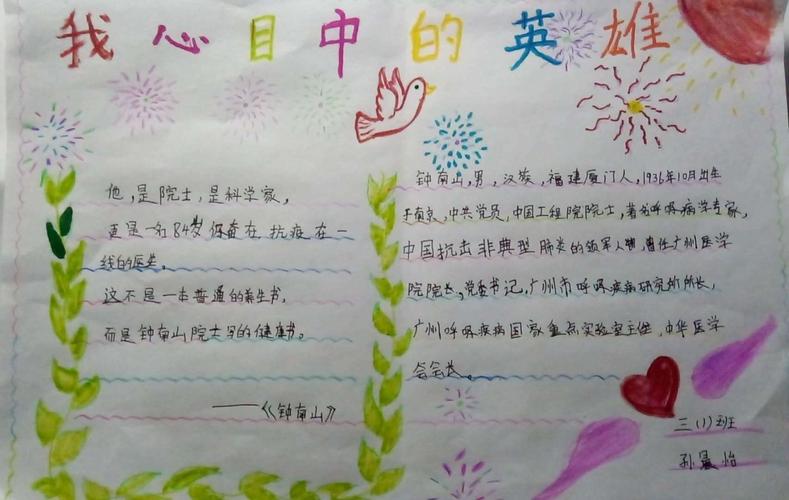 我心目中的英雄
他，是院士，是科学家，
更是一名84岁还奋在抗疫在一
线的医生。
这不是一本普通的养生书，
而是钟南山院士写的健康书。
——《钟南山》
钟南山，男，汉族，福建厦门人，1936年10月出生
于南京，中共党员，中国工程院院士，著名呼吸病学专家，
中国抗击非典型肺炎的领军人物，曾任广州医学
院院长，党委书记，广州市呼吸疾病研究所所长，
广州呼吸疾病国家重点实验室主任，中华医学
会会长。
三(1)班
孙晨怡